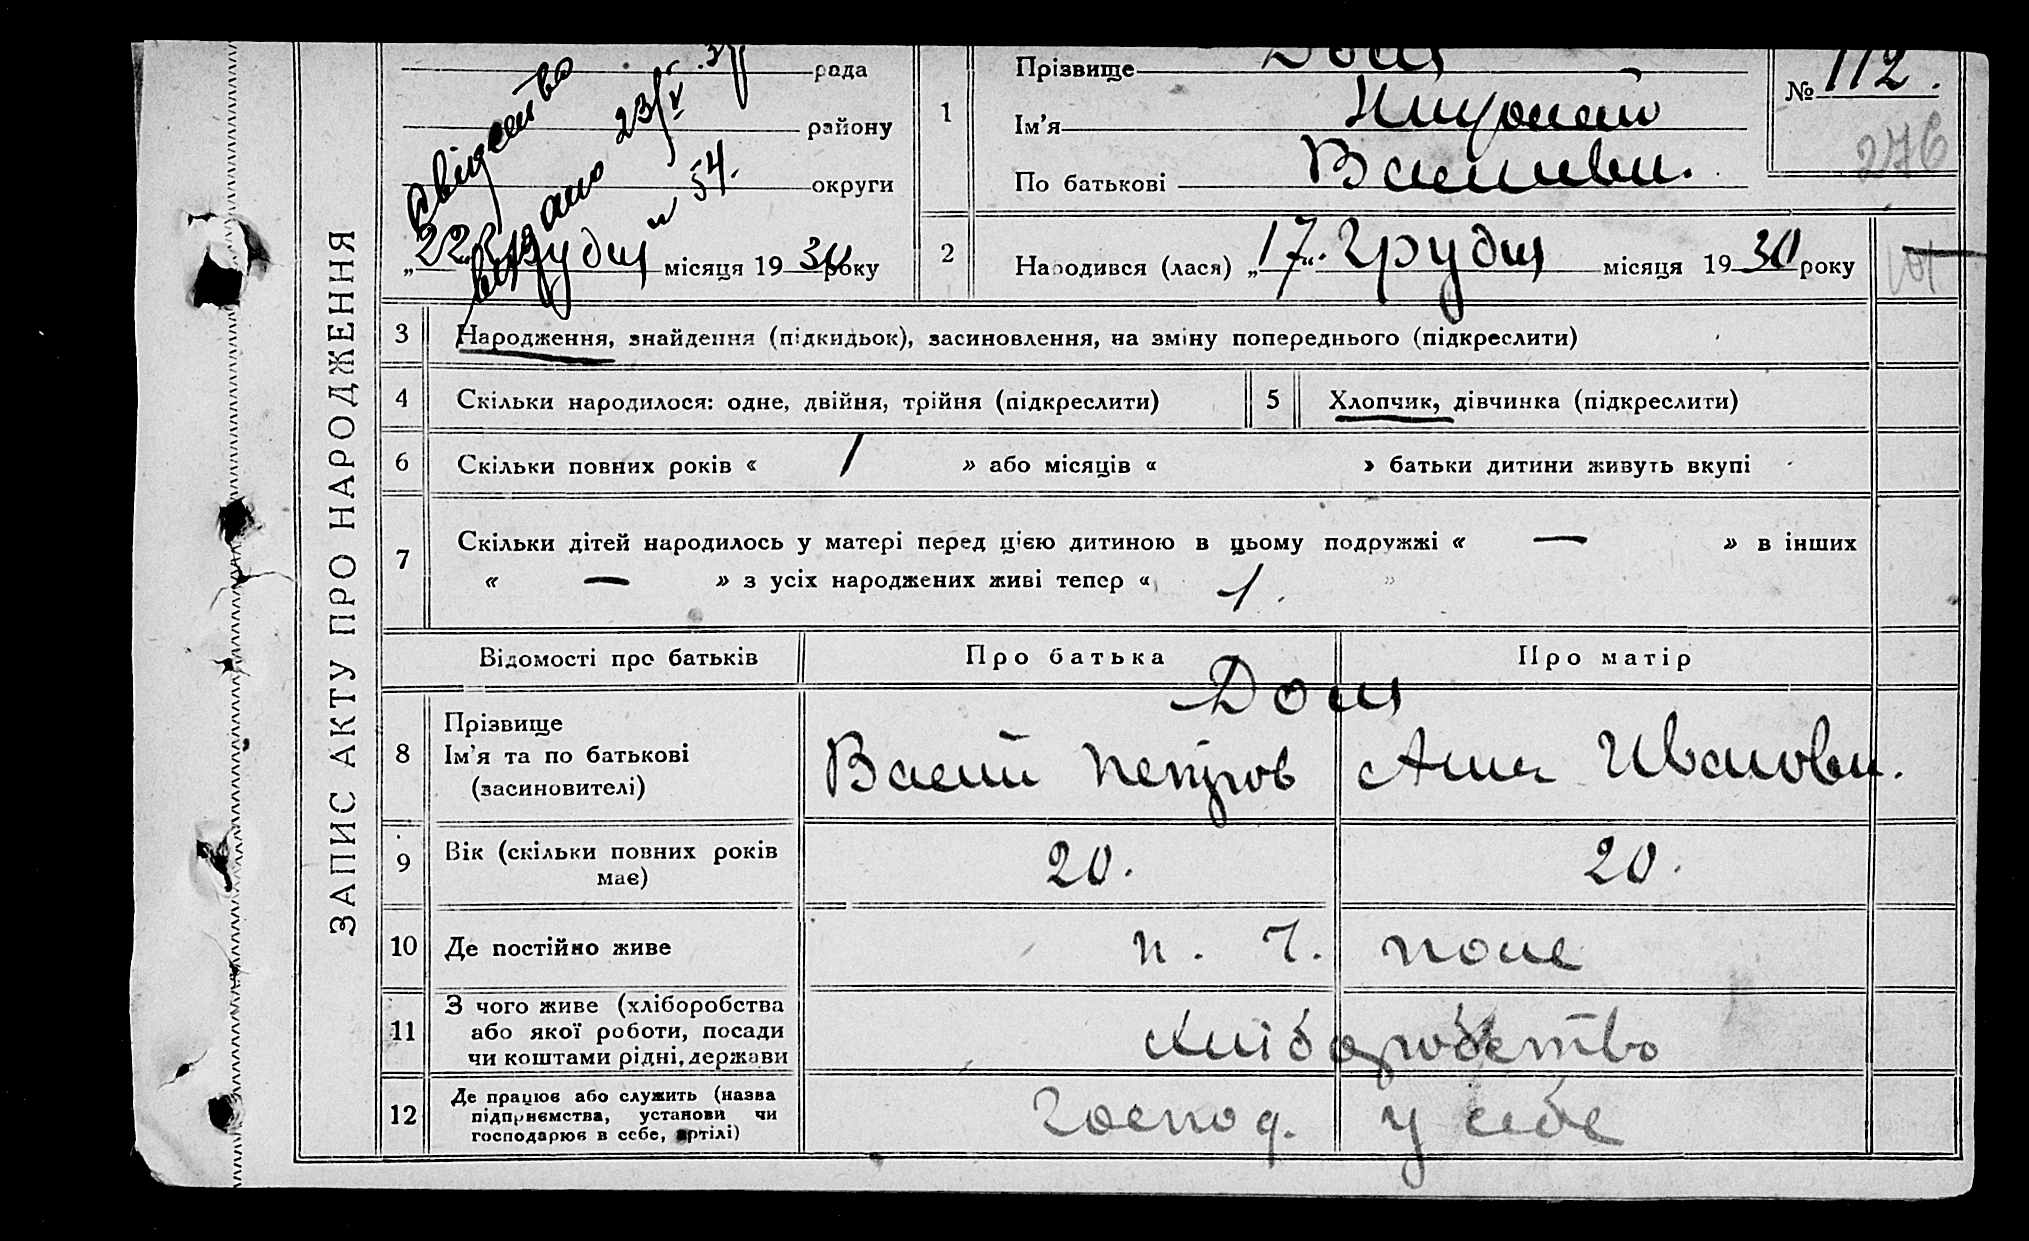 ЗАПИС АКТУ ПРО НАРОДЖЕННЯ
рада
району
округи
Свідоцтво
видано 23/V 37
№ 54.
„22“ Грудня місяця 1930 року
1
Прізвище Доля
Ім’я
По батькові Васильов.
№ 112.
276
2
Народився (лася) „17“ Грудня місяця 1930 року
3
Народження, знайдення (підкидьок), засиновлення, на зміну попереднього (підкреслити)
4
Скільки народилося: одне, двійня, трійня (підкреслити)
5
Хлопчик, дівчинка (підкреслити)
6
Скільки повних років « 1 » або місяців « » батьки дитини живуть вкупі
7
Скільки дітей народилось у матері перед цією дитиною в цьому подружжі « — » в інших
« — » з усіх народжених живі тепер « 1. »
Відомості про батьків
Про батька
Про матір
8
Прізвище
Ім’я та по батькові
(засиновителі)
Доля
Василь Петров
Анна Иванови.
9
Вік (скільки повних років
має)
20.
20.
10
Де постійно живе
п. г. поле
11
З чого живе (хліборобства
або якої роботи, посади
чи коштами рідні, держави
хліборобство
12
Де працює або служить (назва
підприємства, установи чи
господарює в себе, артілі)
Господ. у себе